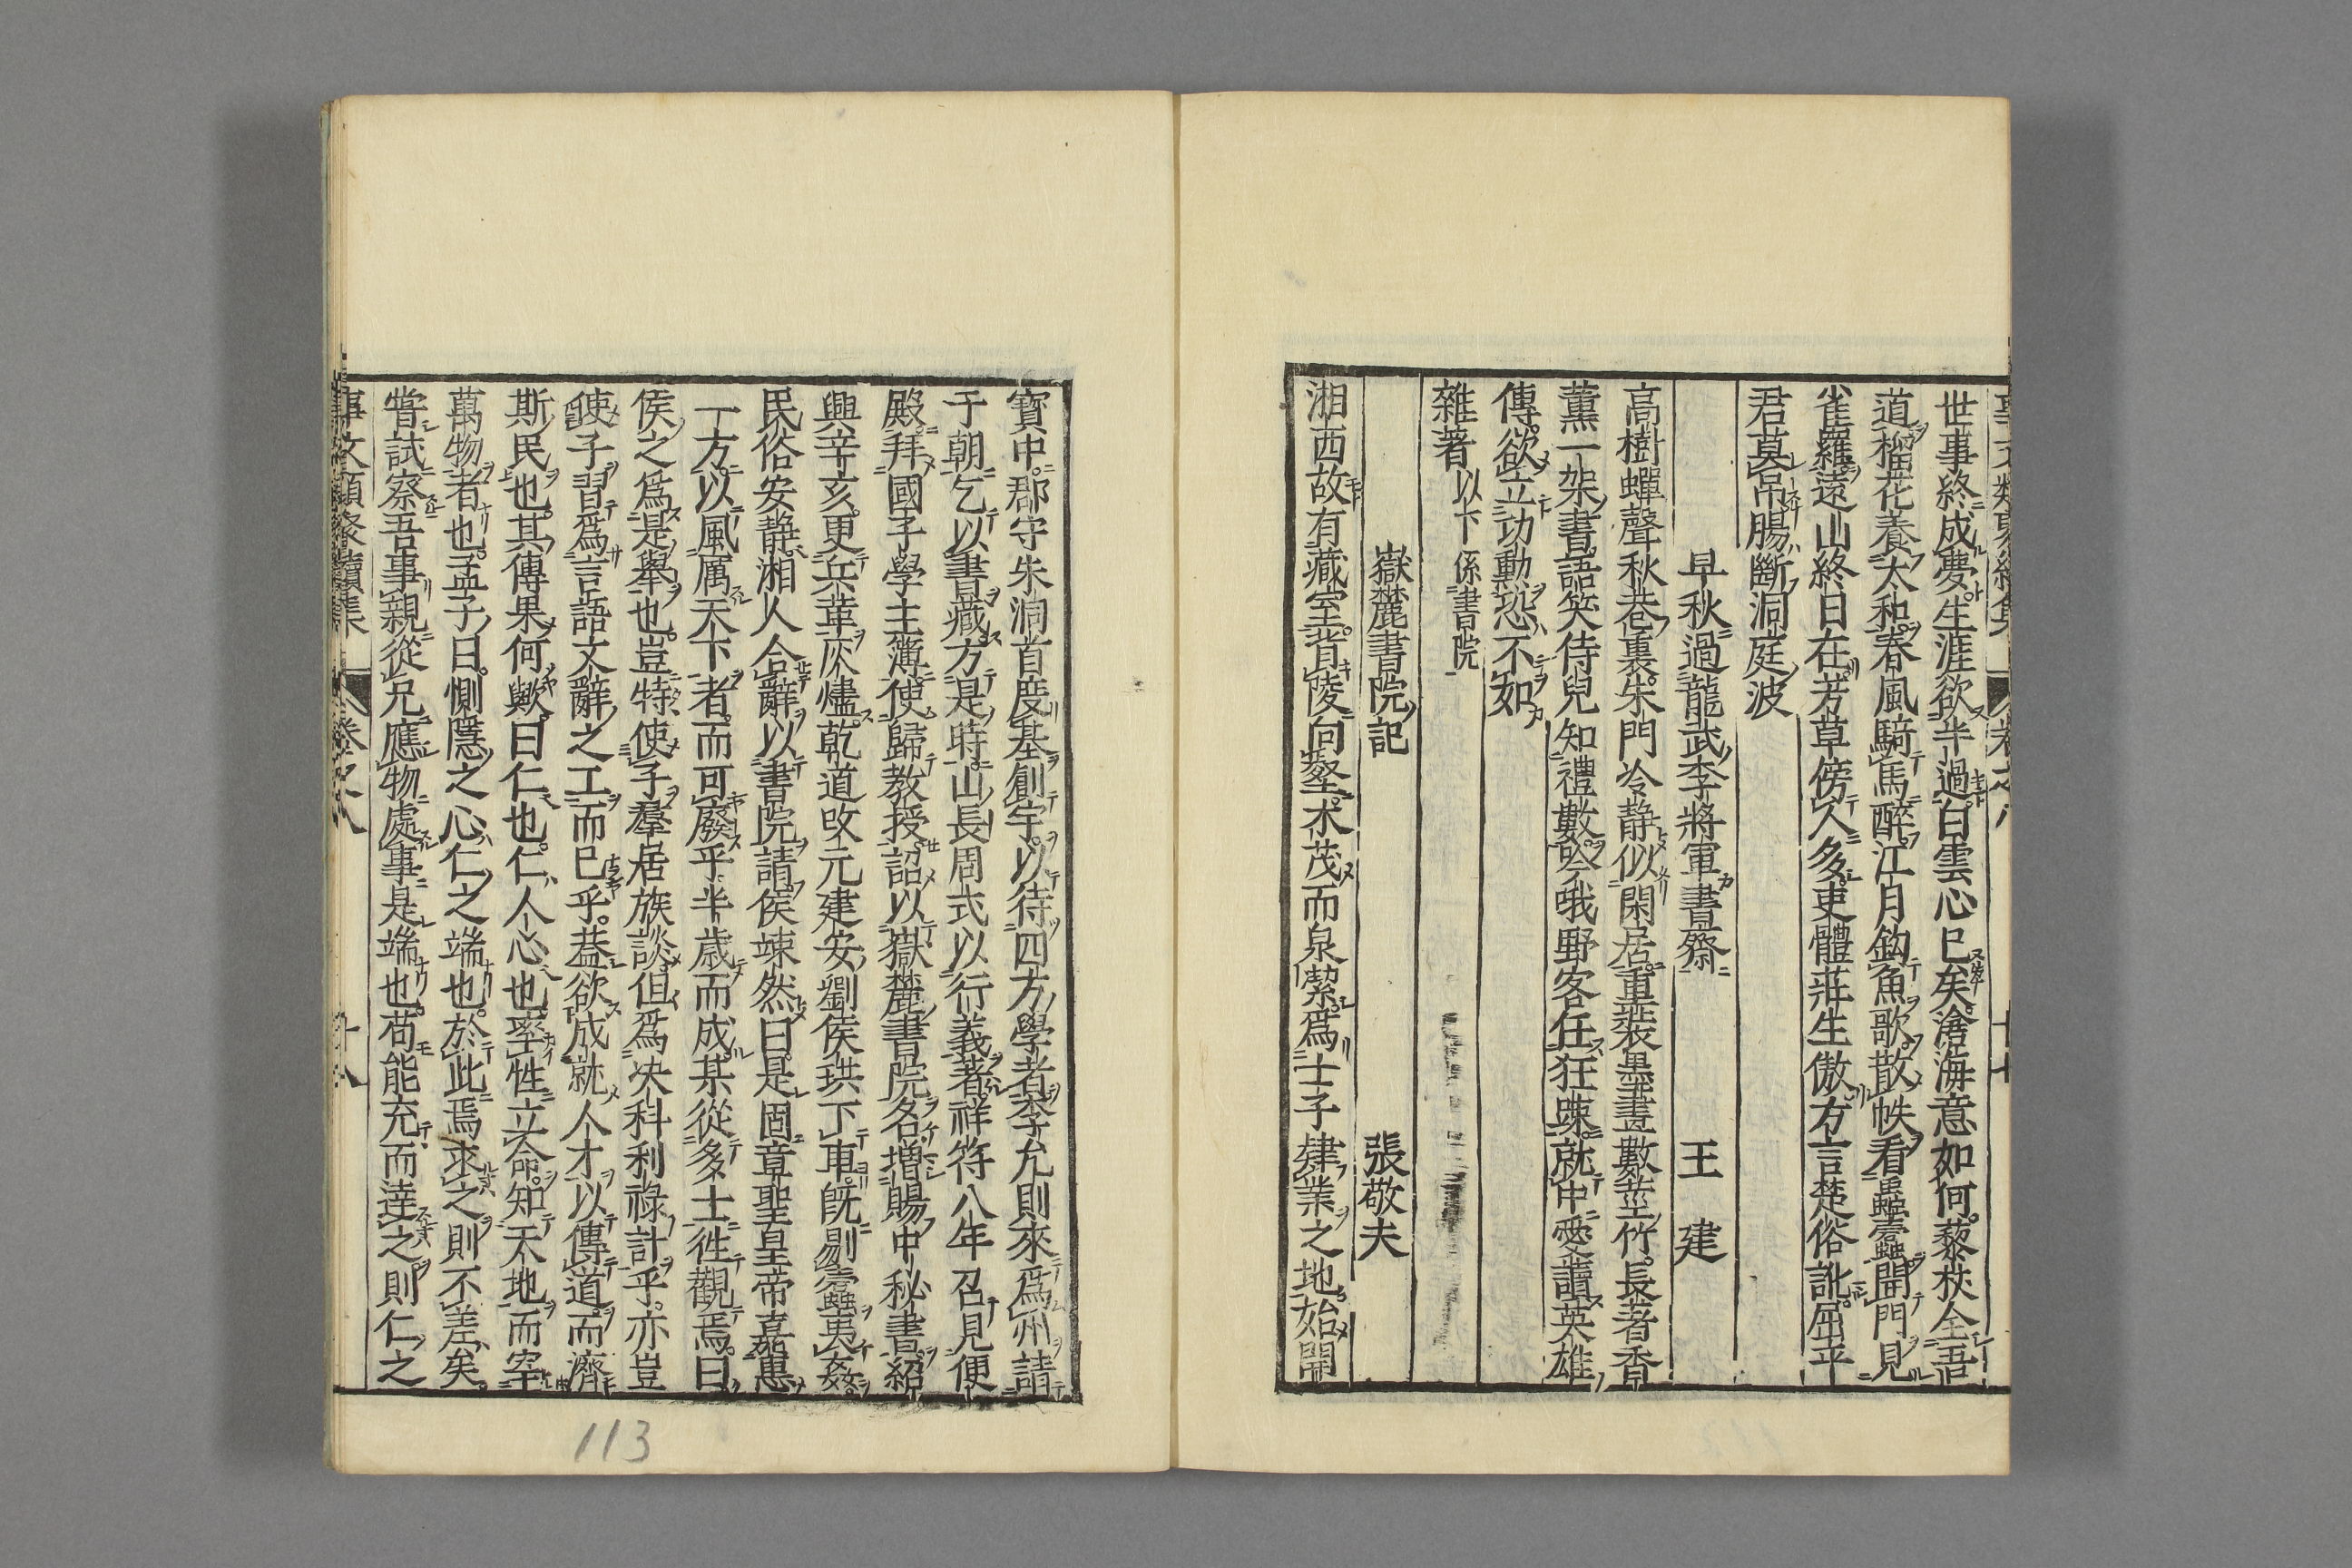 世事終成夢。生涯欲半過。白雲心已矣。滄海意如何。藜杖全吾
道。榴花養太和。春風騎馬醉。江月釣魚歌。散帙看蟲蠹。開門見
雀羅。遠山終日在。芳草傍人多。吏體莊生傲。方言楚俗訛。屈平
君莫吊。腸斷洞庭波
早秋過龍武李將軍書齋　王建
高樹蟬聲秋巷裏。朱門冷靜似閑居。重裝墨畫數莖竹。長著香
薰一架書。語笑侍兒知禮數。吟哦野客任狂踈。就中愛讀英雄
傳。欲立功勳恐不如
雜著 以下係書院
嶽麓書院記　張敬夫
湘西故有藏室。背陵向壑。木茂而泉潔。爲士子肄業之地。始開
寶中。郡守朱洞首度基創宇。以待四方學者。李允則來爲州請
于朝。乞以書藏方是時。山長周式以行義著。祥符八年召見便
殿。拜國子學主簿。使歸教授。詔以嶽麓書院名。增賜中秘書。紹
興辛亥。更兵革灰燼。乾道改元。建安劉侯珙下車。既剔蠹夷姦。
民俗安靜。湘人合辭以書院請。侯竦然曰。是固章聖皇帝嘉惠
一方。以風厲天下者。而可廢乎。半歲而成。某從多士往觀焉。曰
侯之爲是舉也。豈特使子羣居族談。但爲决科利祿計乎。亦豈
使子習爲言語文辭之工而已乎。葢欲成就人才。以傳道而濟
斯民也。其傳果何歟。曰仁也。仁人心也。率性立命。知天地而宰
萬物者也。孟子曰。惻隱之心。仁之端也。於此焉求之。則不差矣。
嘗試察吾事親從兄應物處事。是端也。苟能充而達之。則仁之
事文類聚續集　卷之八　十八